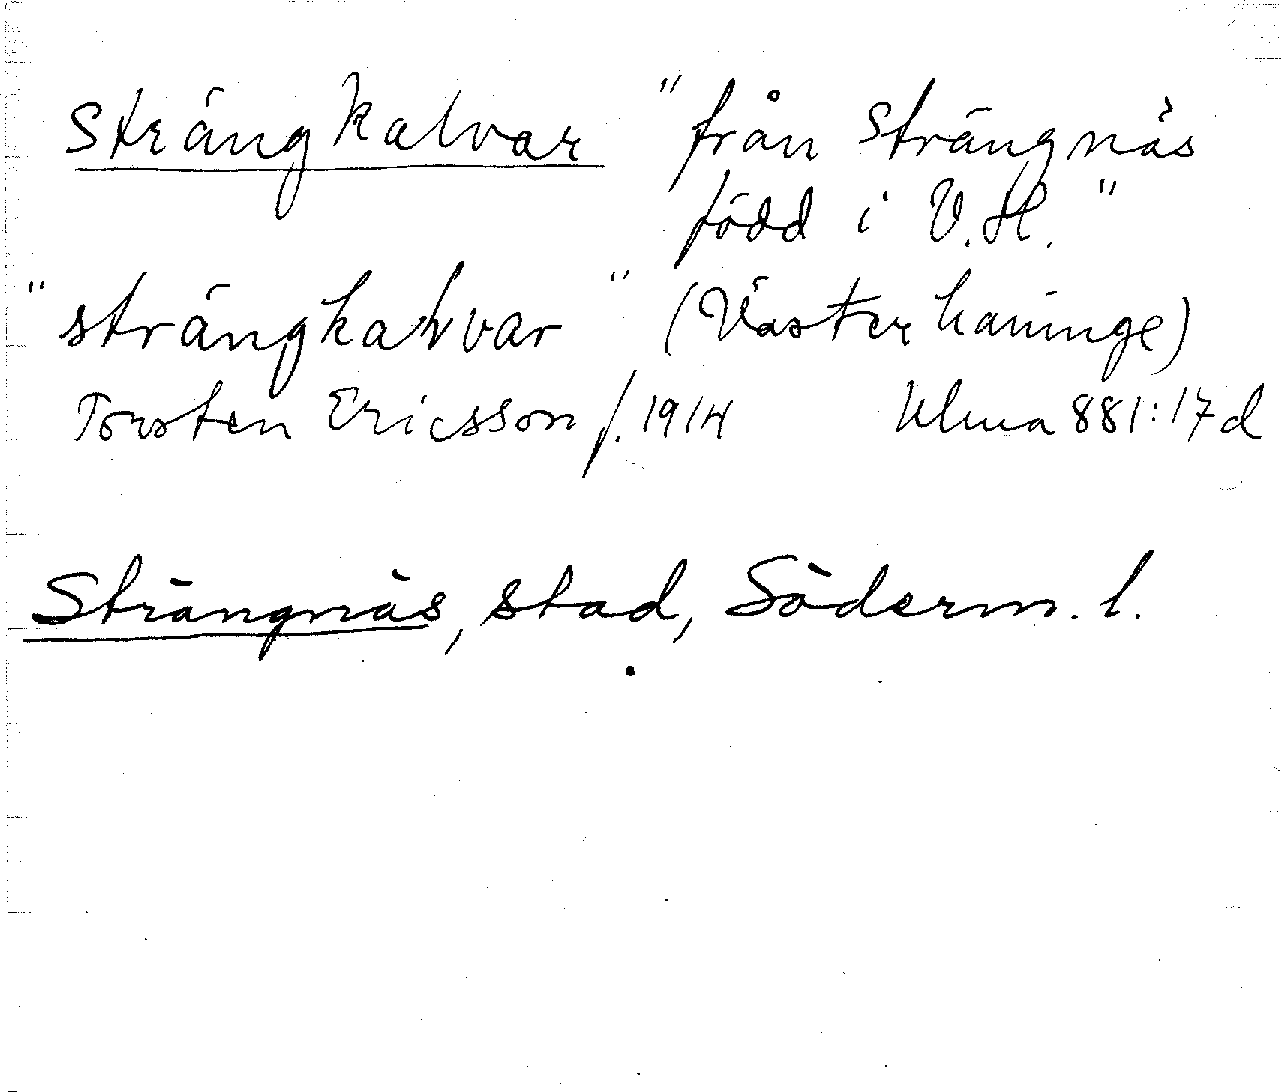 Strängkalvar "från Strängnäs
född i V.H."
"strängkalvar" (Västerhaninge)
Torsten Ericsson f. 1914 Ulma 881:17d
Strängnäs, stad, Söderm. l.